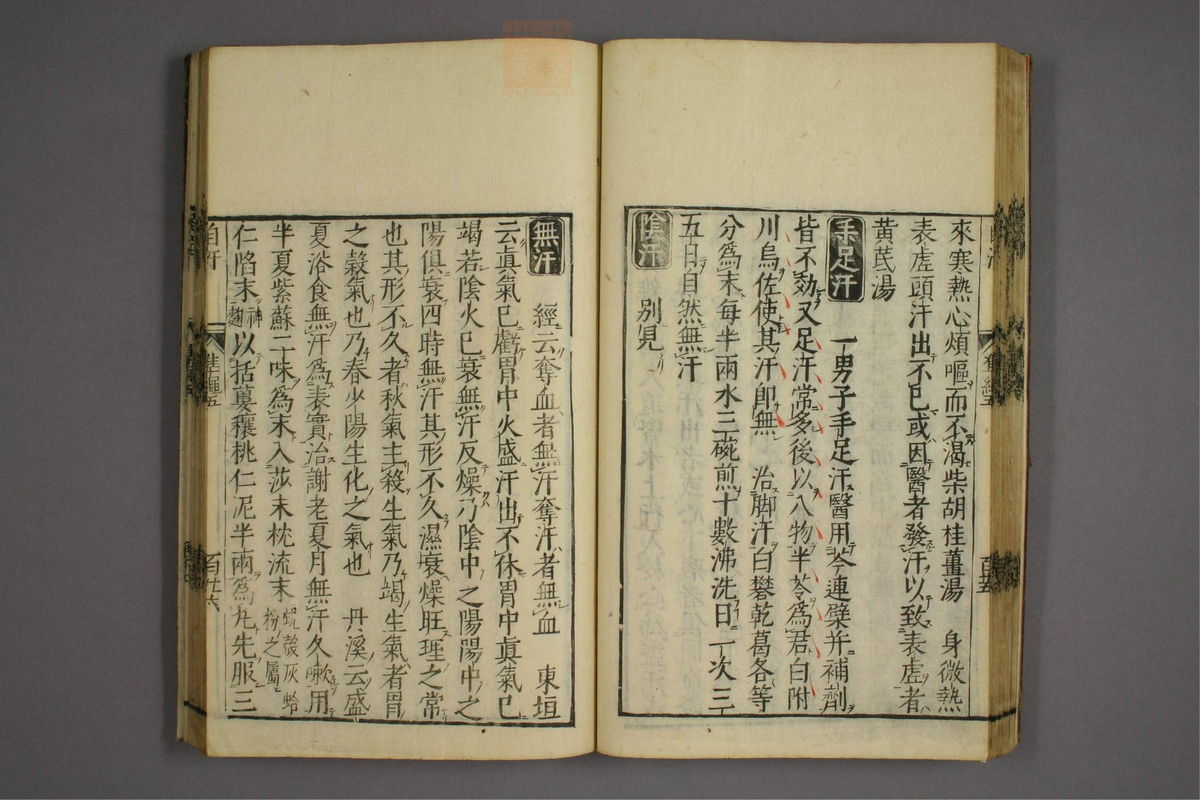 來寒熱心煩嘔而不渴柴胡桂薑湯　身微熱
表虛頭汗出不已或因醫者發汗以致表虛者
黃芪湯
手足汗　一男子手足汗醫用芩連檗并補劑
皆不効又足汗常多後以八物半苓爲君白附
川烏佐使其汗即無　治脚汗白礬乾葛各等
分爲末每半兩水三碗煎十數沸洗日一次三
五日自然無汗
陰汗　別見
無汗　經云奪血者無汗奪汗者無血　東垣
云眞氣已虧胃中火盛汗出不休胃中眞氣已
竭若陰火已衰無汗反燥乃陰中之陽陽中之
陽俱衰四時無汗其形不久濕衰燥旺理之常
也其形不久者秋氣主殺生氣乃竭生氣者胃
之穀氣也乃春少陽生化之氣也　丹溪云盛
夏浴食無汗爲表實治謝老夏月無汗久嗽用
半夏紫蘇二味爲末入莎末枕流末蜆殼灰蛤粉之屬
仁陷末神麹以括蔞穰桃仁泥半兩爲丸先服三
百廿六